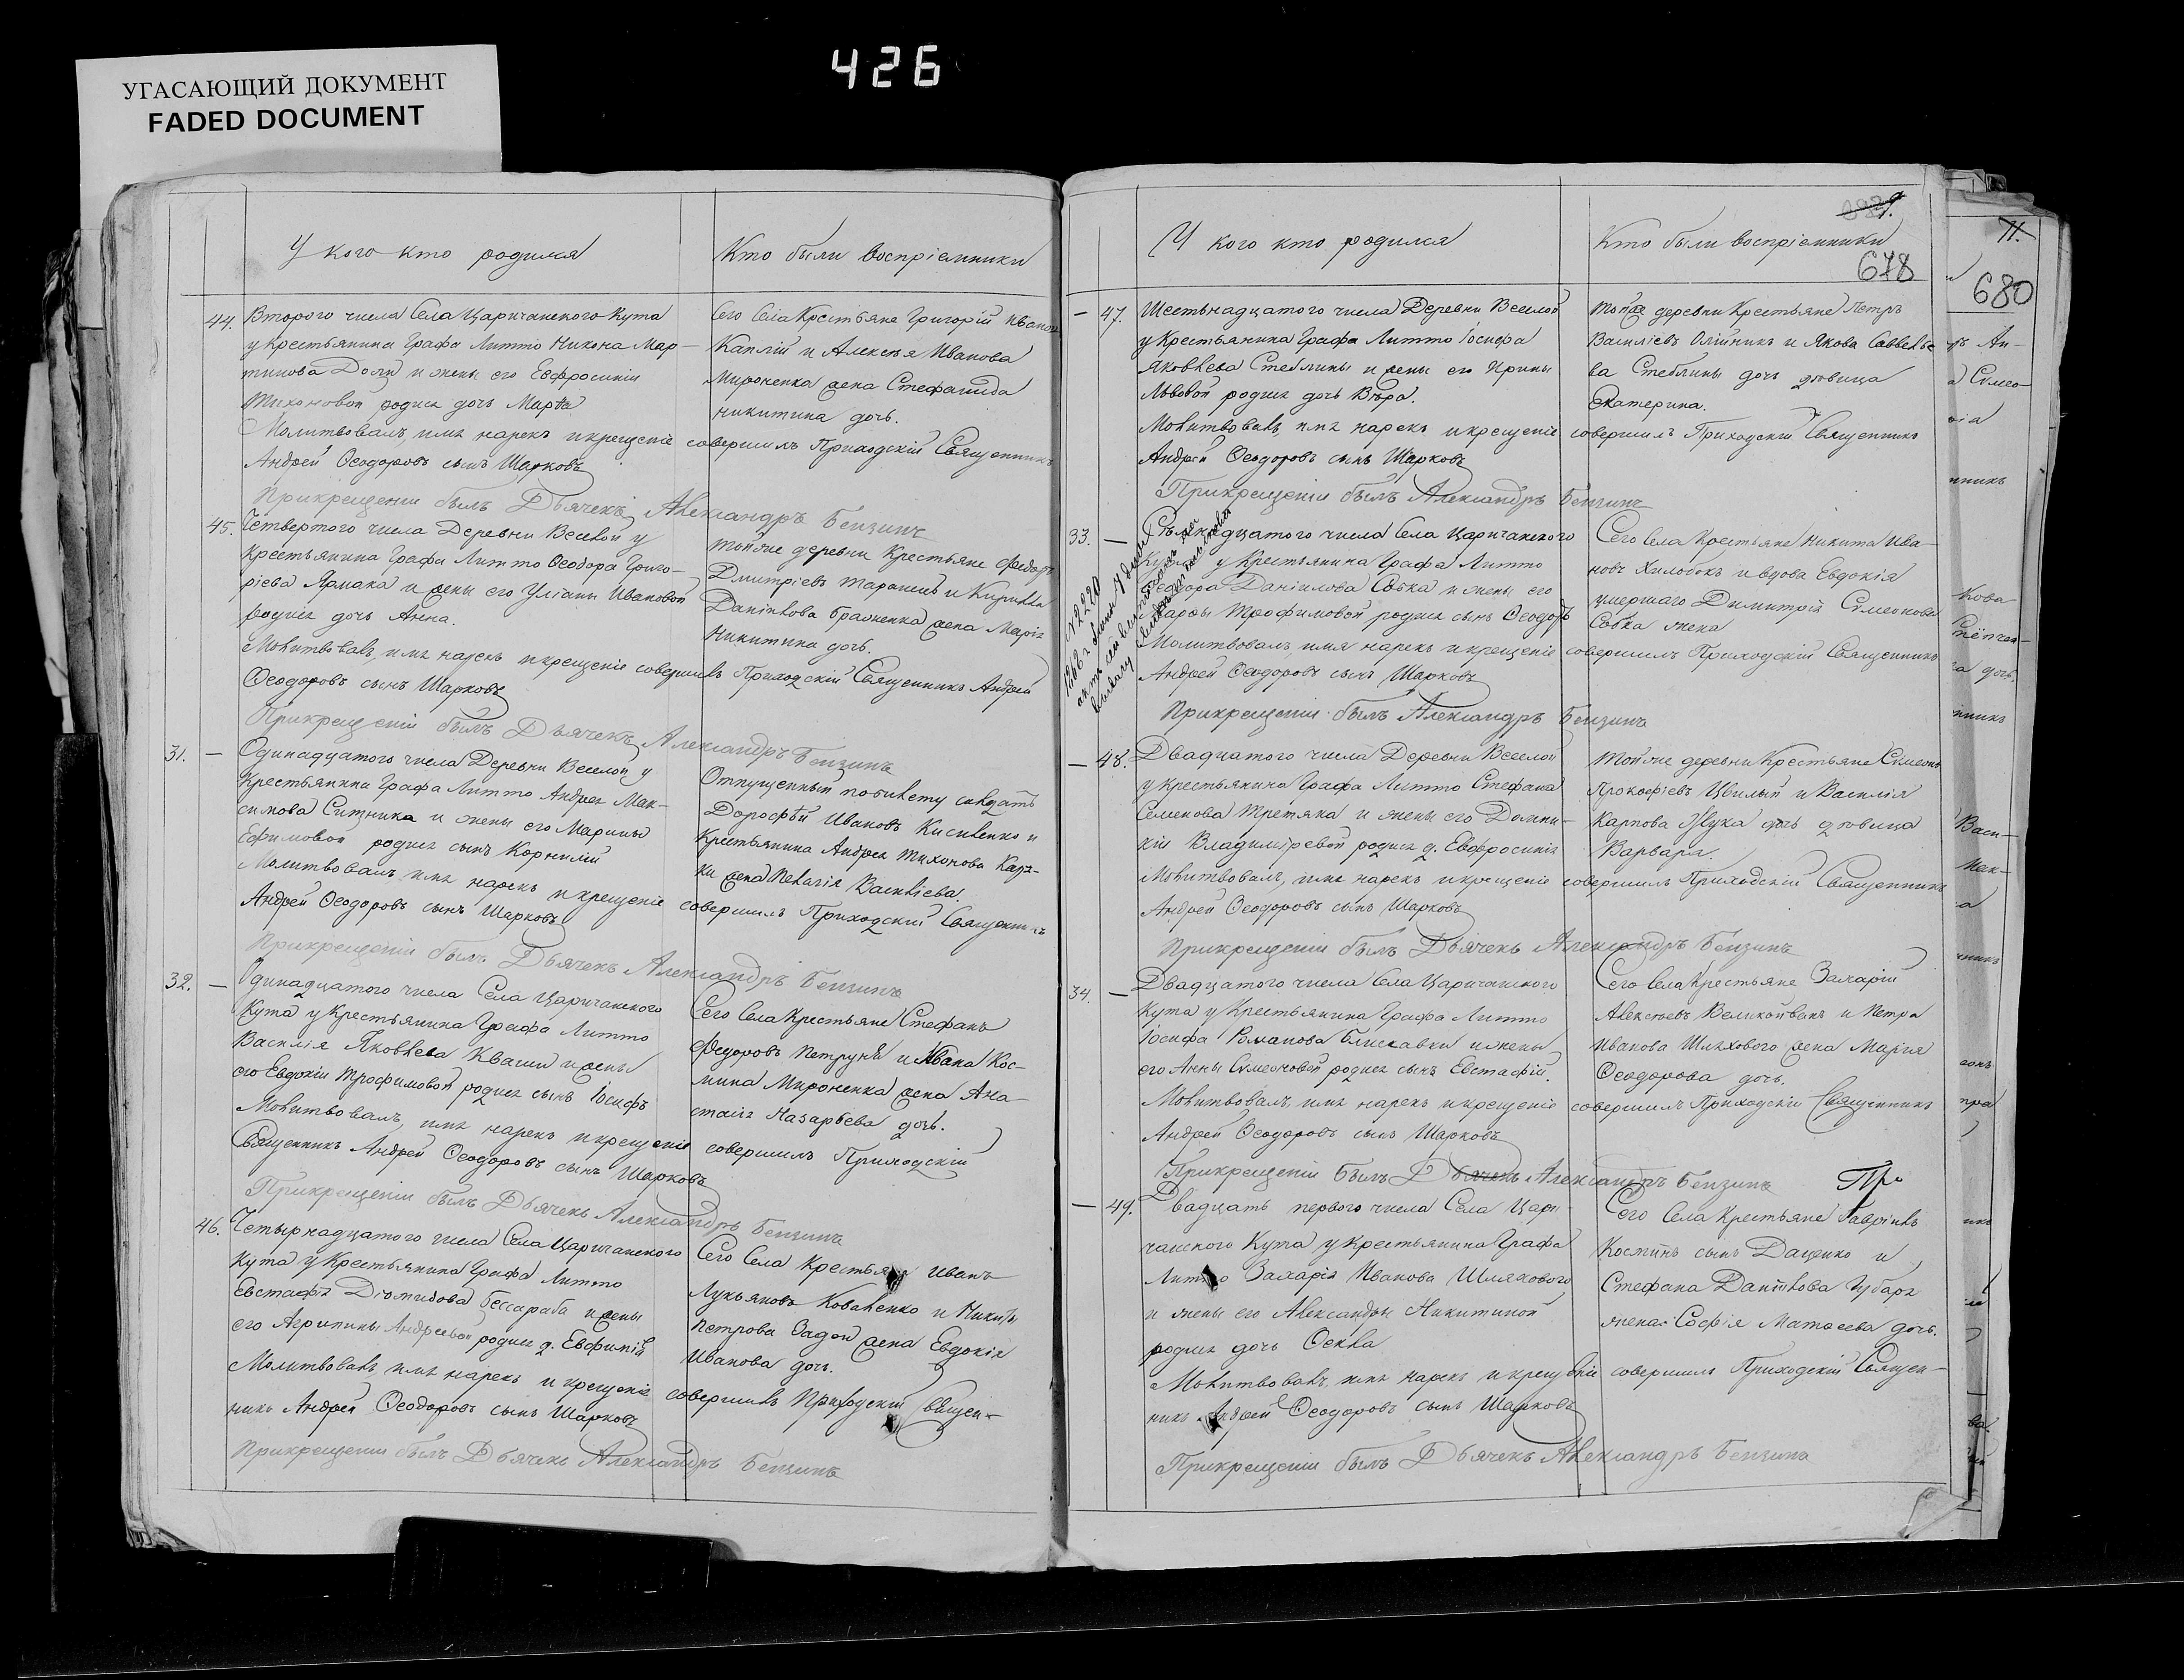 426
УГАСАЮЩИЙ ДОКУМЕНТ
FADED DOCUMENT
У кого кто родился
Кто были воспріемники
44. Втораго числа Села Царичанского Кута
у крестьянина Графа Литто Никона Мар-
тинова Доли и жены его Евфросиніи
Тихоновой родися дочь Марѳа
Сего Села Крестьяне Григорій Иванов
Каплій и Алексѣя Иванова
Мироненка жена Стефанида
Никитина дочь.
Молитвовалъ, имя нарекъ и крещеніе совершилъ Приходскій Священникъ
Андрей Ѳеодоровъ сынъ Шарковъ
Прикрещеніи былъ Дьячекъ Александръ Бензинъ
45. Четвертого числа Деревни Веселой у
Крестьянина Графа Литто Ѳеодора Григо-
ріева Ярмака и жены его Уліаны Ивановой
родися дочь Анна.
Тойже деревни Крестьяне Федоръ
Дмитріевъ Таранецъ и Кирилла
Данілова Браженка жена Марія
Никитина дочь.
Молитвовалъ, имя нарекъ и крещеніе совершилъ Приходскій Священникъ Андрей
Ѳеодоровъ сынъ Шарковъ
Прикрещеніи былъ Дьячекъ Александръ Бензинъ
31. — Одинадцатого числа Деревни Веселой у
Крестьянина Графа Литто Андрея Мак-
симова Ситника и жены его Марины
Ефимовой родися сынъ Корнилій
Отпущенный по билету солдатъ
Дорофѣй Ивановъ Кисиленко и
Крестьянина Андрея Тихонова Кар-
жена Пелагія Василіева.
Молитвовалъ имя нарекъ и крещеніе совершилъ Приходскій Священникъ
Андрей Ѳеодоровъ сынъ Шарковъ
Прикрещеніи былъ Дьячекъ Александръ Бензинъ
32. — Одинадцатого числа Села Царичанского
Кута у Крестьянина Графа Литто
Василія Яковлева Кваши и жены
его Евдокіи Трофимовой родися сынъ Іосифъ
Сего Села Крестьяне Стефанъ
Федоровъ Петруня и Ивана Кос-
мина Мироненка жена Ана-
стасія Назарьева дочь.
Молитвовалъ, имя нарекъ и крещеніе совершилъ Приходскій
Священникъ Андрей Ѳеодоровъ сынъ Шарковъ
Прикрещеніи былъ Дьячекъ Александръ Бензинъ
46. Четырнадцатого числа Села Царичанского
Кута у Крестьянина Графа Литто
Евстафія Діомидова Бессараба и жены
его Агрипины Андреевой родися д. Евфимія
Сего Села Крестьяне Иванъ
Лукьяновъ Коваленко и Никиты
Петрова Задои жена Евдокія
Иванова дочь.
Молитвовалъ имя нарекъ и крещеніе совершилъ Приходскій Священ-
никъ Андрей Ѳеодоровъ сынъ Шарковъ
Прикрещеніи былъ Дьячекъ Александръ Бензинъ
У кого кто родился
Кто были воспріемники
678
— 47. Шестьнадцатого числа Деревни Веселой
у Крестьянина Графа Литто Іосифа
Яковлева Стеблины и жены его Ирины
Львовой родися дочь Вѣра.
Тойже деревни Крестьяне Петръ
Василіевъ Олійникъ и Якова Саввелье-
ва Стеблины дочь дѣвица
Екатерина.
Молитвовалъ, имя нарекъ и крещеніе совершилъ Приходскій Священникъ
Андрей Ѳеодоровъ сынъ Шарковъ
Прикрещеніи былъ Александръ Бензинъ
1868 г. № 2220
33. — числа Села Царичанского
Кута у Крестьянина Графа Литто
Ѳеодора Даніилова Собка и жены его
Варвары Трофимовой родися сынъ Ѳеодоръ
Сего Села Крестьяне Никита Ива-
новъ Хилобокъ и вдова Евдокія
умершаго Димитрія Симеонова
Собка жена
Молитвовалъ, имя нарекъ и крещеніе совершилъ Приходскій Священникъ
Андрей Ѳеодоровъ сынъ Шарковъ
Прикрещеніи былъ Александръ Бензинъ
— 48. Двадцатого числа Деревни Веселой
у крестьянина Графа Литто Стефана
Семенова Третяка и жены его Домни-
кіи Владиміревой родися д. Евфросинія
Тойже деревни Крестьяне Симеонъ
Прокофіевъ Цвилый и Василія
Карпова Жука дочь дѣвица
Варвара.
Молитвовалъ, имя нарекъ и крещеніе совершилъ Приходскій Священникъ
Андрей Ѳеодоровъ сынъ Шарковъ
Прикрещеніи былъ Дьячекъ Александръ Бензинъ
34. — Двадцатого числа Села Царичанского
Кута у Крестьянина Графа Литто
Іосифа Романова Блискавки и жены
его Анны Симеоновой родися сынъ Евстафій.
Сего Села Крестьяне Захарій
Алексѣевъ Великойванъ и Петра
Иванова Шляхового жена Марія
Ѳеодорова дочь.
Молитвовалъ, имя нарекъ и крещеніе совершилъ Приходскій Священникъ
Андрей Ѳеодоровъ сынъ Шарковъ
Прикрещеніи былъ Дьячекъ Александръ Бензинъ Пр
— 49. Двадцать первого числа Села Цари-
чанского Кута у Крестьянина Графа
Литто Захарія Иванова Шляхового
и жены его Александры Никитиной
родися дочь Ѳекла
Сего Села Крестьяне Гавріилъ
Косминъ сынъ Даценко и
Стефана Даніилова Чубаря
жена Софія Матѳеева дочь.
Молитвовалъ, имя нарекъ и крещеніе совершилъ Приходскій Священ-
никъ Андрей Ѳеодоровъ сынъ Шарковъ
Прикрещеніи былъ Дьячекъ Александръ Бензинъ
11.
680